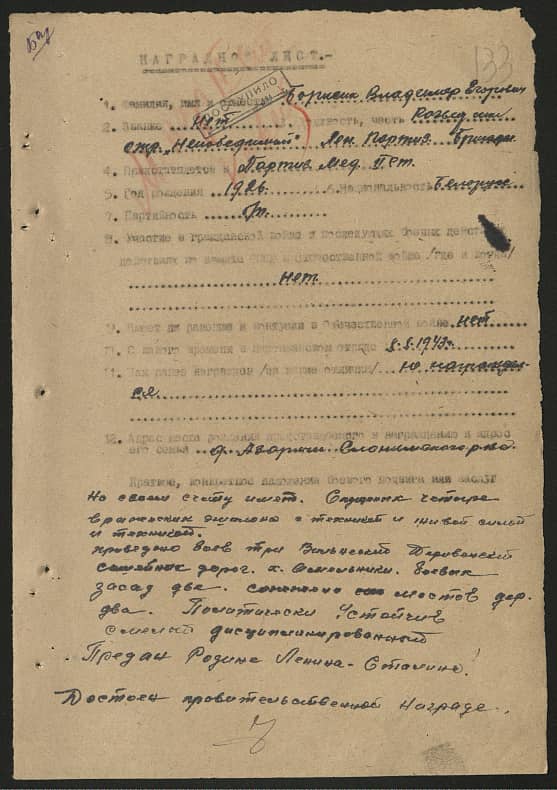 133
НАГРАДНОЙ ЛИСТ.-
1. Фамилия, имя и отчество Борисик Владимир Егорович
2. Звание Нет 3. Должность, часть
отр. "Непобедимый" Лен. Партиз. бригады
4. Представляется к Партиз Мед. II ст.
5. Год рождения 1926 6. Национальность Белорус
7. Партийность
8. Участие в гражданской войне и последующих боевых
действиях по защите СССР и отечественной войне /где и когда/
Нет.
9. Имеет ли ранения и контузии в Отечественной войне нет
10. С какого времени в партизанском отряде 8.8.1943г.
11. Чем ранее награжден /за какие отличия/ не награжда
ся
12. Адрес места рождения представляемого к награждению и адрес
его семьи д. Слонимского р-на.
Краткое, конкретное изложение боевого подвига или заслуг
На своем счету имеет. Спущенных четыре
вражеских эшелона с техникой и живой силой
и техникой.
проведено боев три Деревянский
дорог. х. боевых
засад две. сожжено мостов дер.
два. Политически Устойчив
смелый дисциплинированный
Предан Родине Ленина-Сталина!
Достоен правительственной Награде.